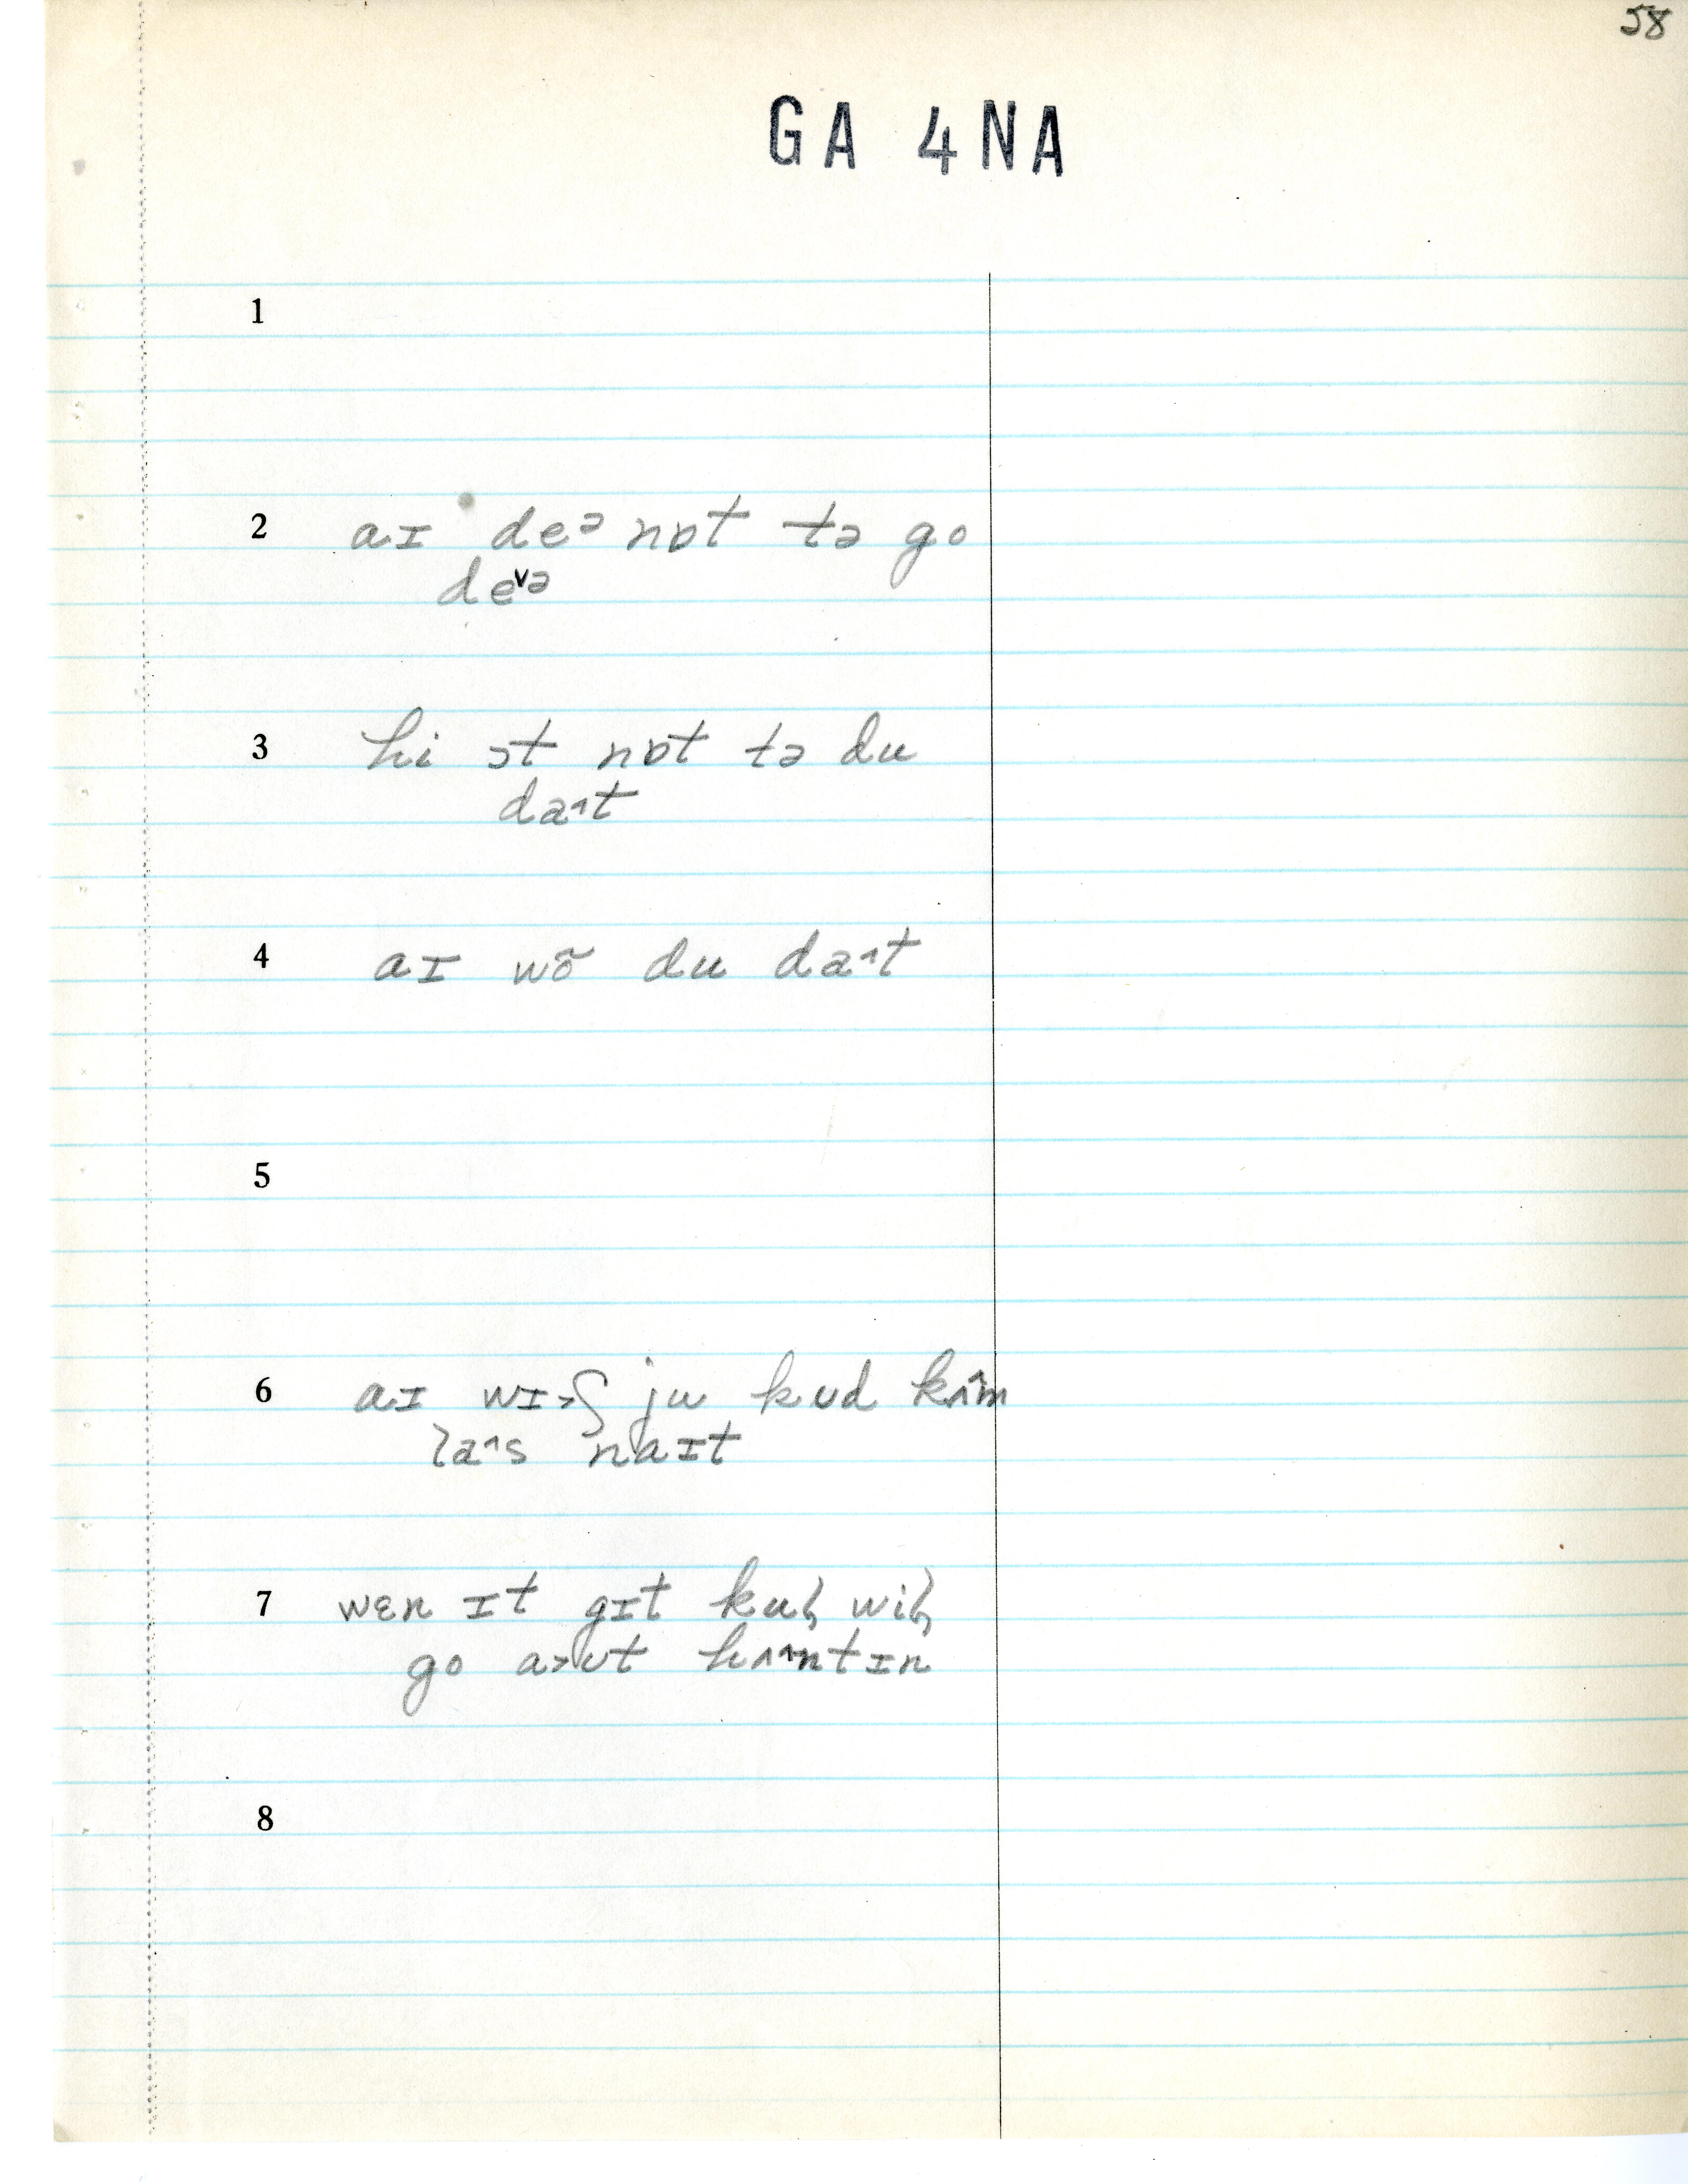 58
GA 4NA
1
2 aɪ deᵊ nɒt tə go
de˅ə
3 hi ɔt nɒt tə du
da˄t
4 aɪ wõ du da˄t
5
6 aɪ wɪ˃ʃ ju kʊd kʌ˄m
la˄s naɪt
7 wɛn ɪt gɪt kul̩ wil̩
go a˃ʊt hʌ˄ntɪn
8